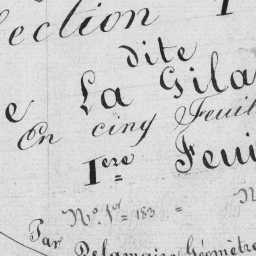 ection
dite
e La Gila
En cinq Feuil
1ere Feui
N° 1er = 183 = N
Par Delamaire Géomètre